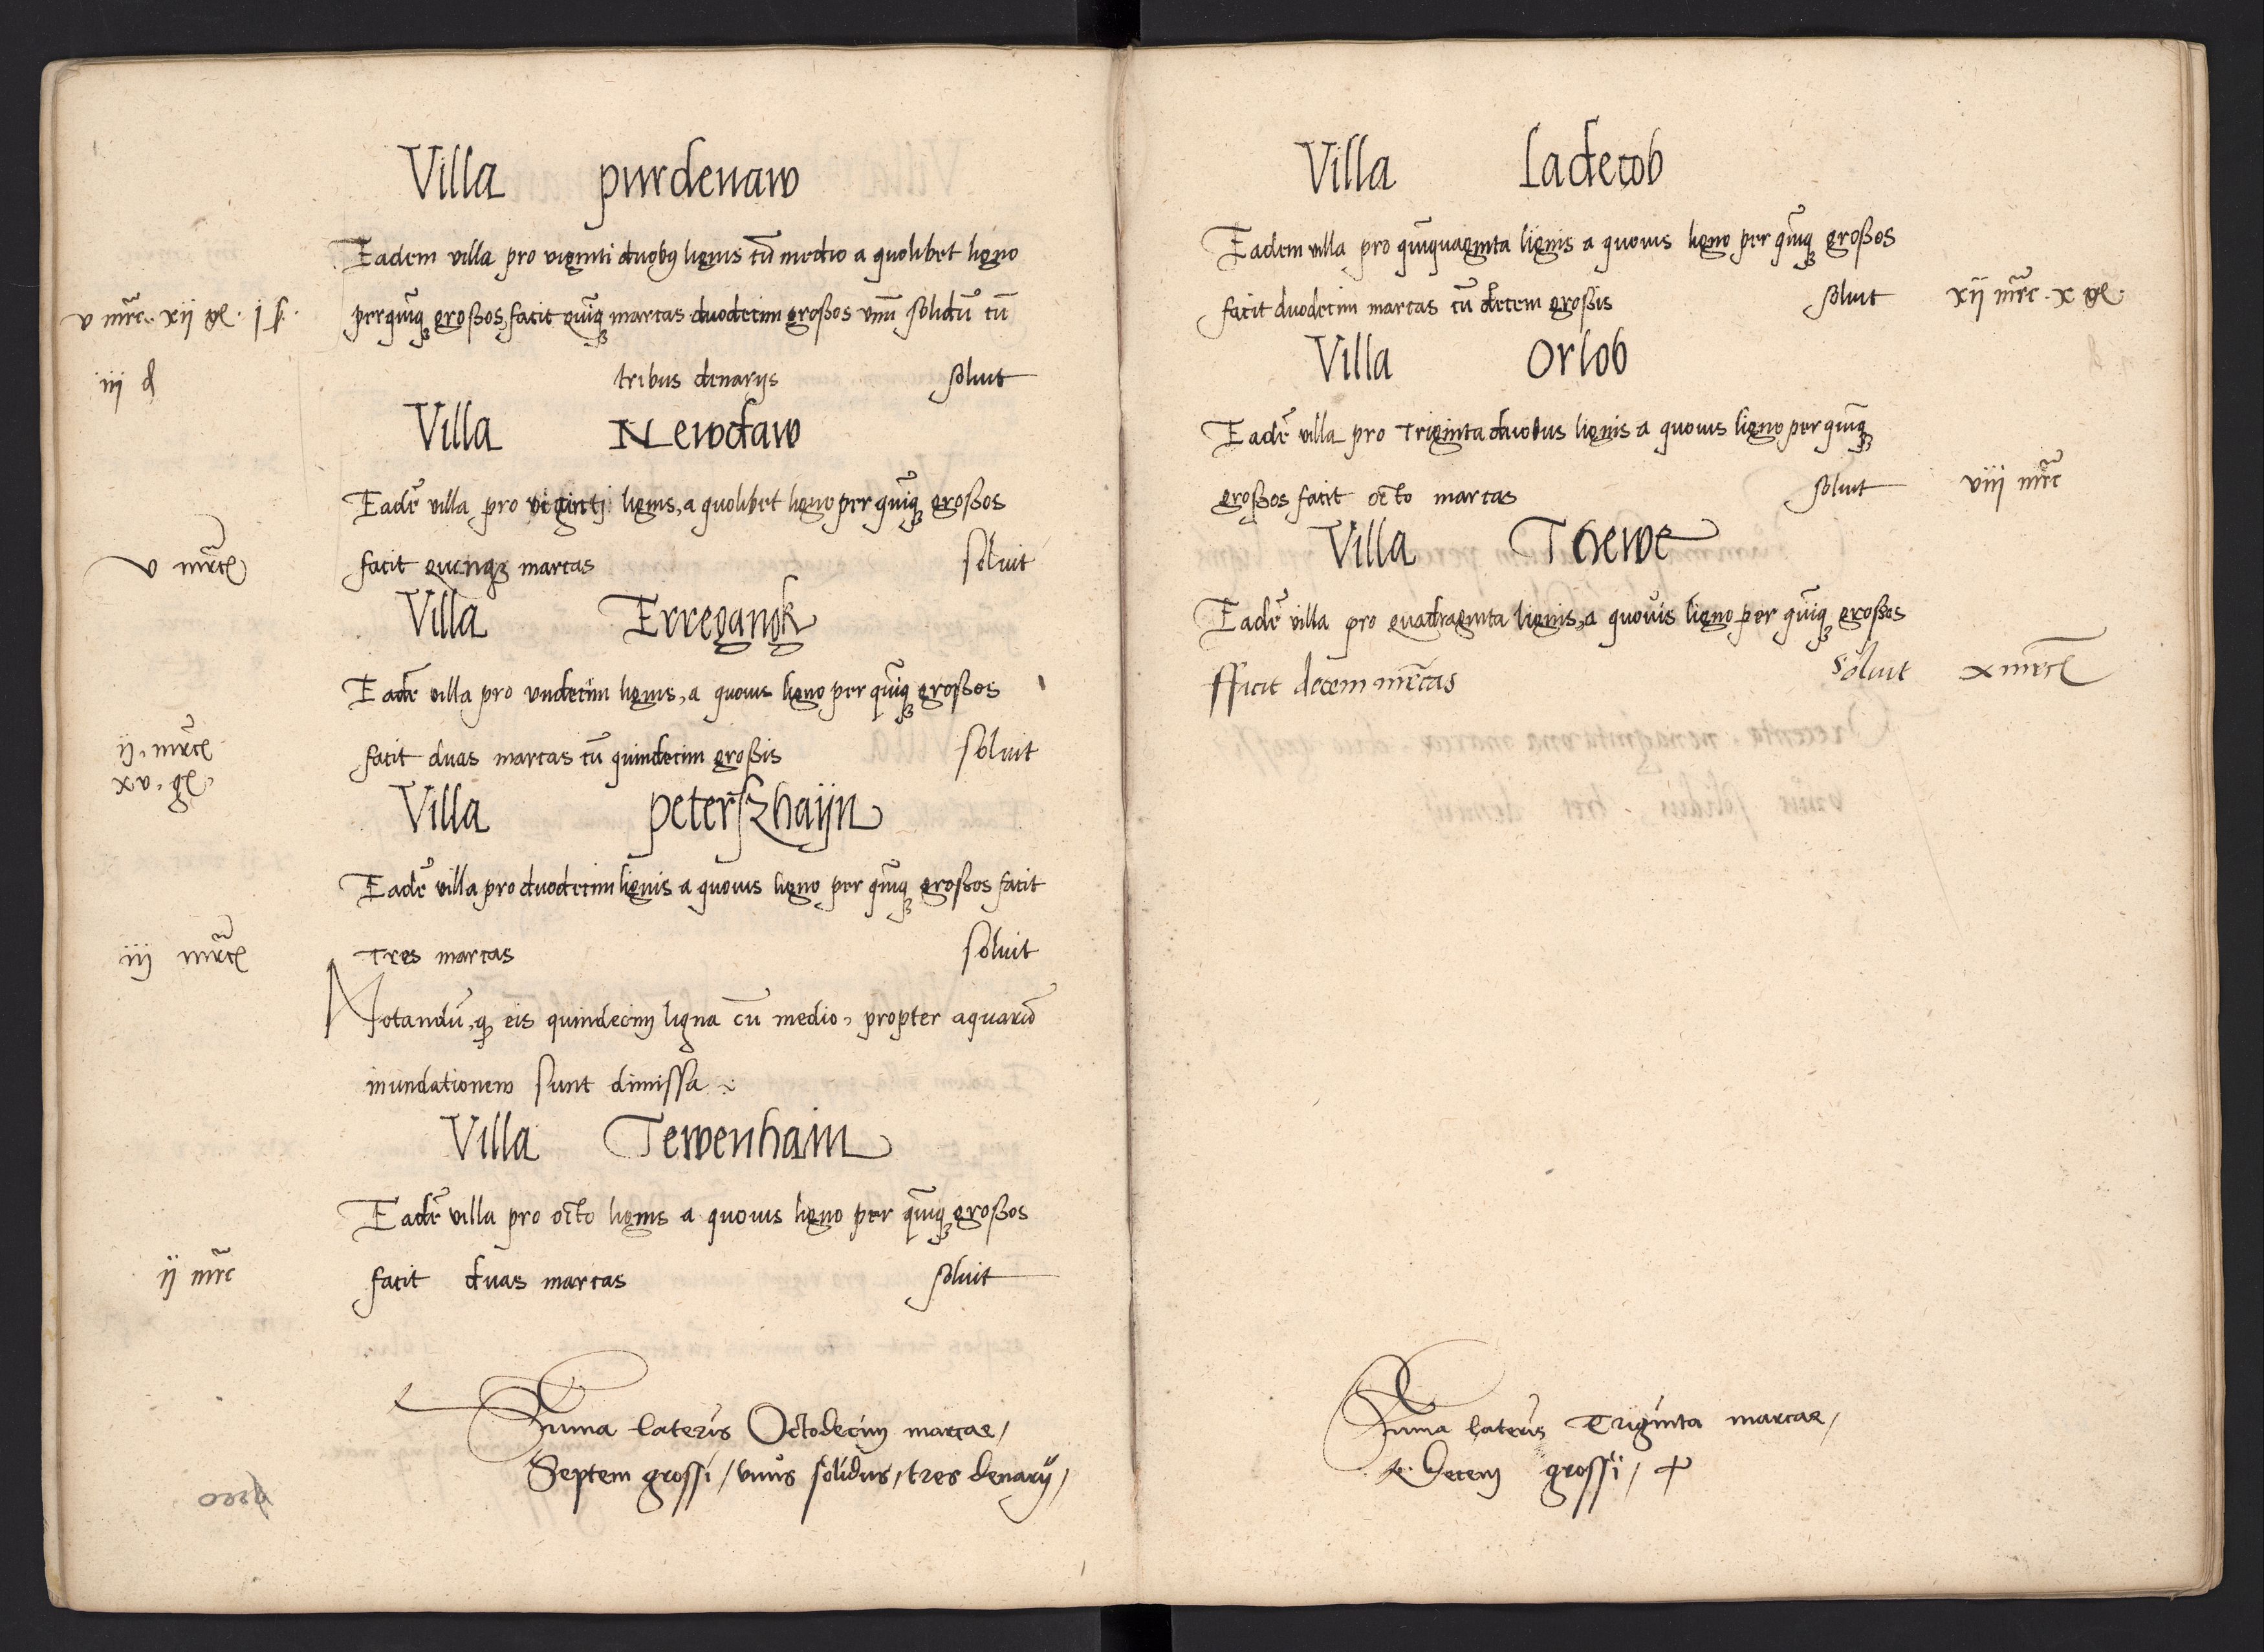 Villa purdenaw
Eadem villa pro viginti duobꝰ lignis cū medio a quolibet ligno
v mrc̄. xii gℓ. i ẜ. perquīqꝫ großos, facit quīqꝫ marcas duodecim großos vnū solidū cū
iij d tribus denarijs soluit
Villa Newdaw
Eadē villa pro viginti lignis, a quolibet ligno per quīqꝫ großos
v mrc̄ facit quinqꝫ marcas soluit
Villa Erregangk
Eadē villa pro vndecim lignis, a quouis ligno per quīqꝫ großos
ij. mrc̄ facit duas marcas cū quindecim großis soluit
xv. gℓ.
Villa peterſzhaijn
Eadē villa pro duodecim lignis a quouis ligno per quīqꝫ großos facit
iij mrc̄ Tres marcas soluit
Notandū, qꝫ eis quindecim ligna cū medio, propter aquarū
inundationem sunt dimissa
Villa Tewenhain
Eadē villa pro octo lignis a quouis ligno per quīqꝫ großos
ij mrc̄ facit duas marcas soluit
Suma lateris Octodecim marcae/
Septem grossi/ vnus solidus, tres denarij/
Villa Ladecob
Eadem villa pro quīquaginta lignis a quouis ligno per quīqꝫ großos
facit duodecim marcas cū decem großis soluit xij mrc̄. x gℓ.
Villa Orlob
Eadē villa pro Triginta duobus lignis a quouis ligno per quīqꝫ
großos facit octo marcas soluit viij mrc̄
Villa Thewe
Eadē villa pro quadraginta lignis, a quouis ligno per quīqꝫ großos
ffacit decem mrcas soluit x mrc̄
Suma lateris Triginta marcae/
Decem grossi/